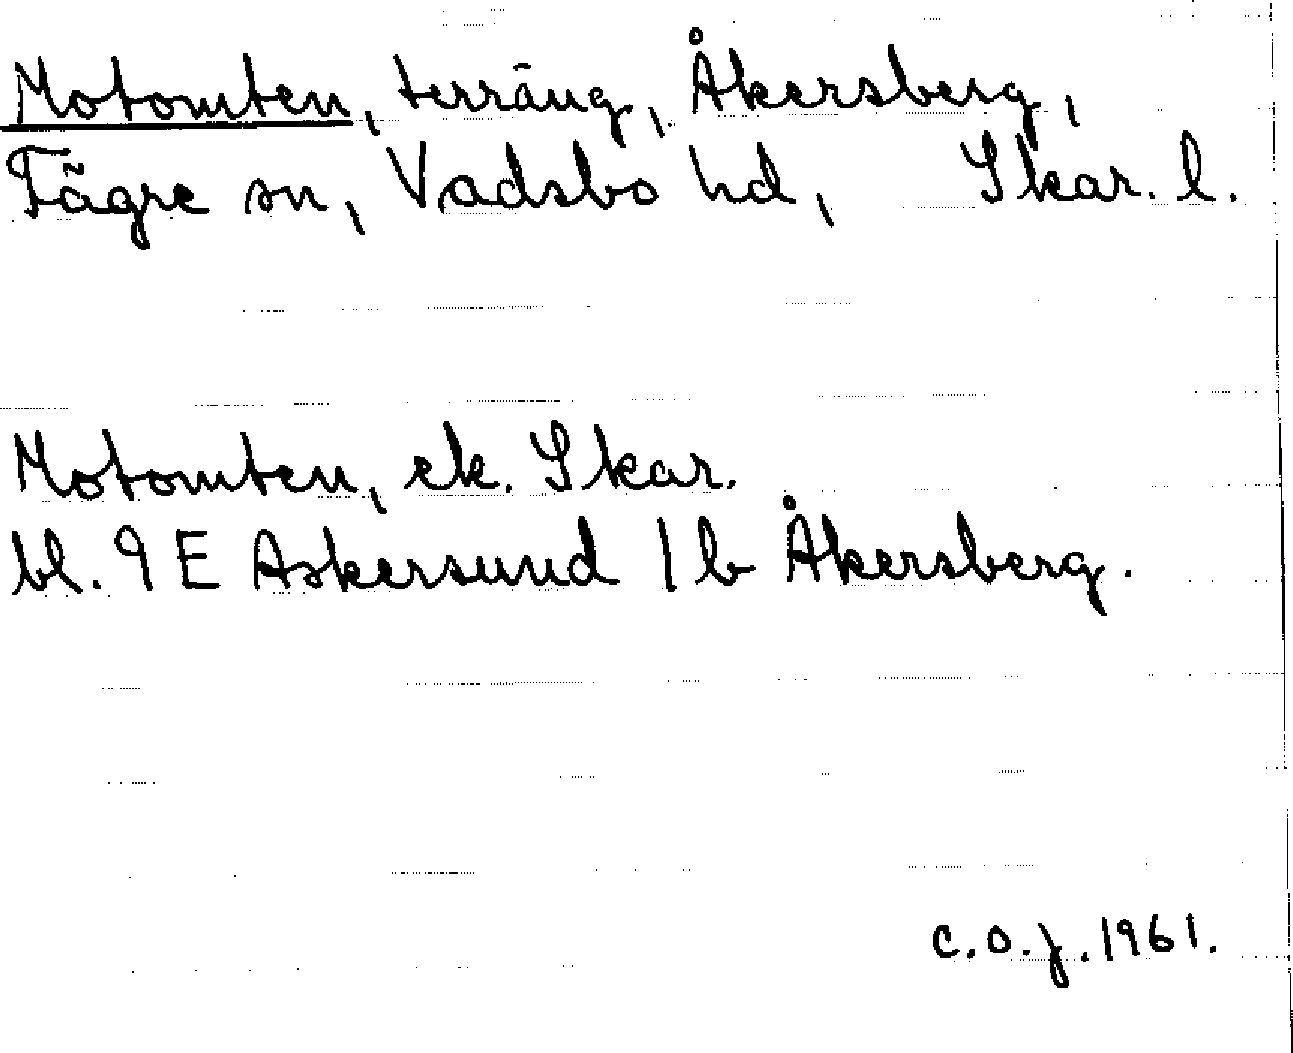 Motomten, terräng, Åkersberg,
Fägre sn, Vadsbo hd, Skar. l.
Motomten, ek. Skar.
bl. 9 E Askersund 1 b Åkersberg.
C.O.J. 1961.